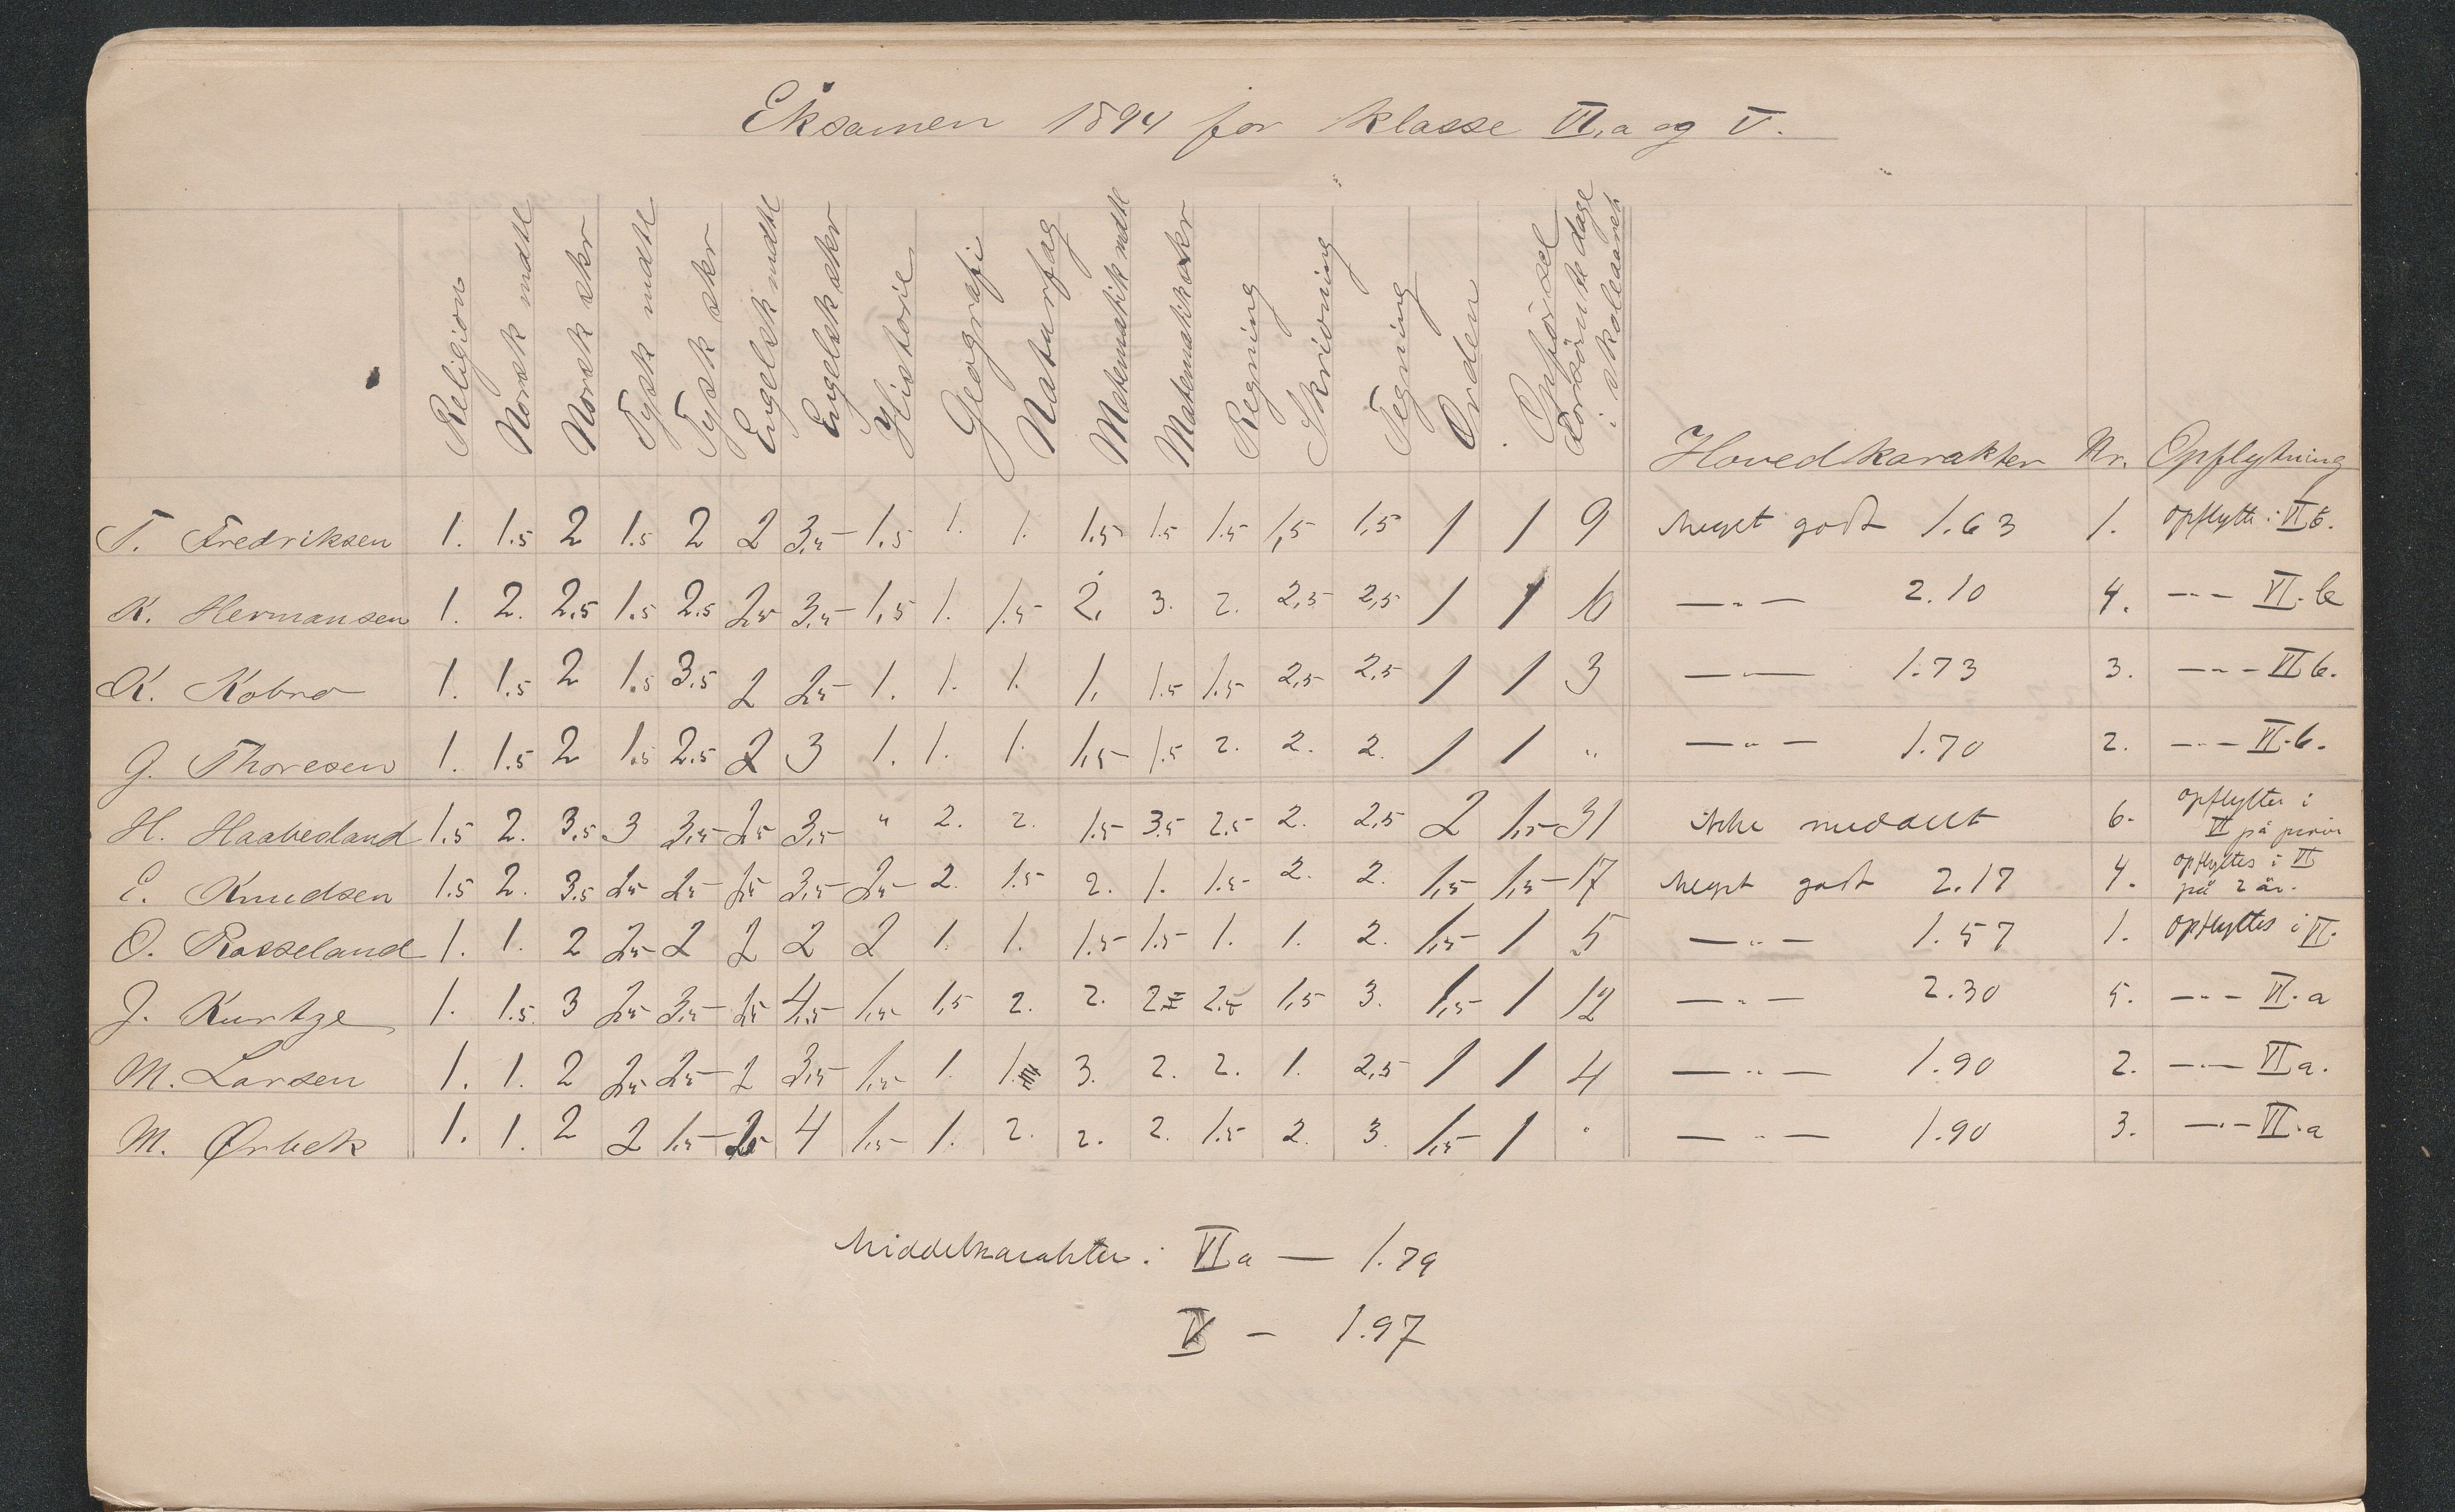 Eksamen 1894 for klasse VI.a og V.
Religion Norsk mdtl Norsk skr Tysk mdtl Tysk skr Engelsk mdtl Engelsk skr Historie Geografi Naturfag Matematik mdtl Matematik skr Regning Skrivning Tegning Orden Opførsel Forsømte dage i skoleaaret Hovedkarakter Nr. Opflytning
T. Fredriksen 1. 1.5 2 1.5 2 2 3,5 1.5 1. 1. 1.5 1.5 1.5 1,5 1,5 1 1 9 Meget godt 1.63 1. opflytt. i VI b.
K. Hermansen 1. 2. 2.5 1.5 2.5 2,5 3,5 1,5 1. 1.5 2. 3. 2. 2,5 2,5 1 1 16 — " — 2.10 4. — " — VI. b
K. Kobro 1. 1.5 2 1.5 3.5 2 2,5 1. 1. 1. 1. 1.5 1.5 2,5 2,5 1 1 3 — " — 1.73 3. — " — VI b.
G. Thoresen 1. 1.5 2 1.5 2.5 2 3 1. 1. 1. 1,5 1.5 2. 2. 2. 1 1 " — " — 1.70 2. — " — VI. b.
H. Haabesland 1.5 2. 3.5 3 3,5 2,5 3,5 " 2. 2. 1.5 3.5 2.5 2. 2,5 2 1,5 31 ikke 6. opflyttes i
VI på
E. Knudsen 1.5 2. 3.5 2,5 2,5 2,5 3,5 2,5 2. 1.5 2. 1. 1.5 2. 2. 1,5 1,5 17 Meget godt 2.17 4. opflyttes i VI
på 2 år.
O. Rosseland 1. 1. 2 2,5 2 2 2 2 1. 1. 1.5 1.5 1. 1. 2. 1,5 1 5 — " — 1.57 1. opflyttes i VI.
J. Kurtze 1. 1.5 3 2,5 3,5 2,5 4,5 1,5 1,5 2. 2. 2 2.5 1,5 3. 1,5 1 12 — " — 2.30 5. — " — VI. a
M. Larsen 1. 1. 2 2,5 2,5 2 3,5 1,5 1. 1. 3. 2. 2. 1. 2,5 1 1 4 — " — 1.90 2. — " — VI a.
M. Ørbek 1. 1. 2 2 1,5 2,5 4 1,5 1. 2. 2. 2. 1.5 2. 3. 1,5 1 " — " — 1.90 3. — " — VI. a
Middelkarakter: VI a — 1.79
V — 1.97